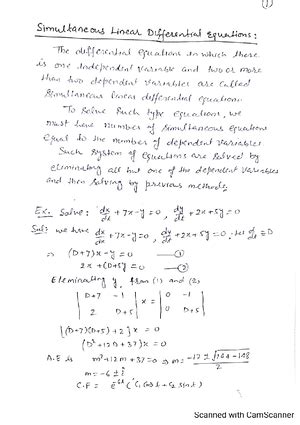 (1)
Simultaneous Linear Differential Equations:
The differential equations in which there
is one independent variable and two or more
than two dependent variables are called
simultaneous linear differential equation.
To solve such type equations, we
must have number of simultaneous equations
equal to the number of dependent variables.
Such system of equations are solved by
eliminating all but one of the dependent variables
and then solving by previous methods.
Ex. Solve: dx/dt + 7x - y = 0, dy/dt + 2x + 5y = 0
Sol: we have dx/dt + 7x - y = 0, dy/dt + 2x + 5y = 0. let d/dt ≡ D
⇒ (D+7)x - y = 0 — (1)
2x + (D+5)y = 0 — (2)
Eleminating y from (1) and (2)
| D+7 -1 | x = | 0 -1 |
| 2 D+5 | | 0 D+5 |
[(D+7)(D+5) + 2] x = 0
(D² + 12D + 37) x = 0
A.E is m² + 12m + 37 = 0 ⇒ m = (-12 ± √(144 - 148))/2
m = -6 ± i
C.F = e^-6t (C₁ cos t + C₂ sin t)
Scanned with CamScanner